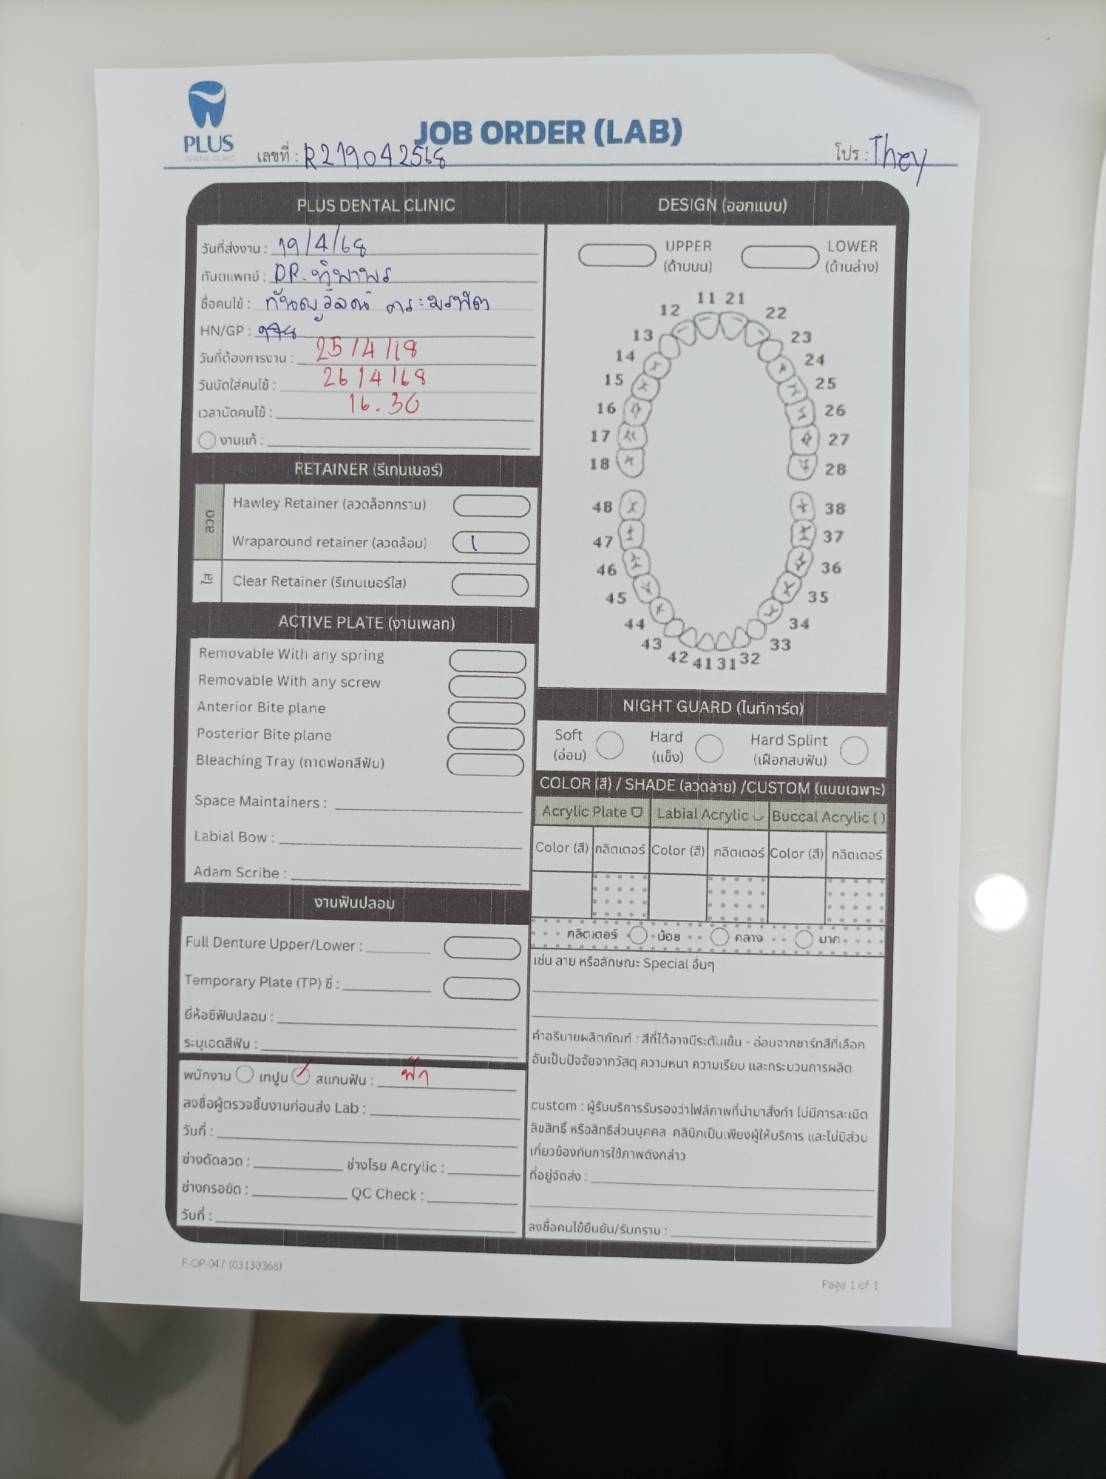 PLUS
DENTAL CLINIC
JOB ORDER (LAB)
เลขที่ : R219042568
โปร : They
PLUS DENTAL CLINIC
วันที่ส่งงาน : 19/4/68
ทันตแพทย์ : DR. ทิพาพร
ชื่อคนไข้ :
HN/GP :
วันที่ต้องการงาน : 25/4/68
วันนัดใส่คนไข้ : 26/4/68
เวลานัดคนไข้ : 16.30
งานแก้ :
RETAINER (รีเทนเนอร์)
ลวด
Hawley Retainer (ลวดล็อกกราม)
Wraparound retainer (ลวดล้อม) 1
ใส
Clear Retainer (รีเทนเนอร์ใส)
ACTIVE PLATE (งานเพลท)
Removable With any spring
Removable With any screw
Anterior Bite plane
Posterior Bite plane
Bleaching Tray (ถาดฟอกสีฟัน)
Space Maintainers :
Labial Bow :
Adam Scribe :
งานฟันปลอม
Full Denture Upper/Lower :
Temporary Plate (TP) ซี่ :
ยี่ห้อซี่ฟันปลอม :
ระบุเฉดสีฟัน :
พนักงาน เทปูน / สแกนฟัน : ฟ้า
ลงชื่อผู้ตรวจชิ้นงานก่อนส่ง Lab :
วันที่ :
ช่างดัดลวด : ช่างโรย Acrylic :
ช่างกรอขัด : QC Check :
วันที่ :
DESIGN (ออกแบบ)
UPPER LOWER
(ด้านบน) (ด้านล่าง)
11 21
12 22
13 23
14 24
15 25
16 26
17 27
18 28
48 38
47 37
46 36
45 35
44 34
43 33
42 41 31 32
NIGHT GUARD (ไนท์การ์ด)
Soft Hard Hard Splint
(อ่อน) (แข็ง) (เฝือกสบฟัน)
COLOR (สี) / SHADE (ลวดลาย) /CUSTOM (แบบเฉพาะ)
Acrylic Plate Labial Acrylic Buccal Acrylic ( )
Color (สี) กลิตเตอร์ Color (สี) กลิตเตอร์ Color (สี) กลิตเตอร์
กลิตเตอร์ น้อย กลาง มาก
เช่น ลาย หรือลักษณะ Special อื่นๆ
คำอธิบายผลิตภัณฑ์ : สีที่ได้อาจมีระดับเข้ม - อ่อนจากชาร์ทสีที่เลือก
อันเป็นปัจจัยจากวัสดุ ความหนา ความเรียบ และกระบวนการผลิต
custom : ผู้รับบริการรับรองว่าไฟล์ภาพที่นำมาสั่งทำ ไม่มีการละเมิด
ลิขสิทธิ์ หรือสิทธิส่วนบุคคล คลินิกเป็นเพียงผู้ให้บริการ และไม่มีส่วน
เกี่ยวข้องกับการใช้ภาพดังกล่าว
ที่อยู่จัดส่ง :
ลงชื่อคนไข้ยืนยัน/รับทราบ :
F-OP-047 (03130368)
Page 1 of 1